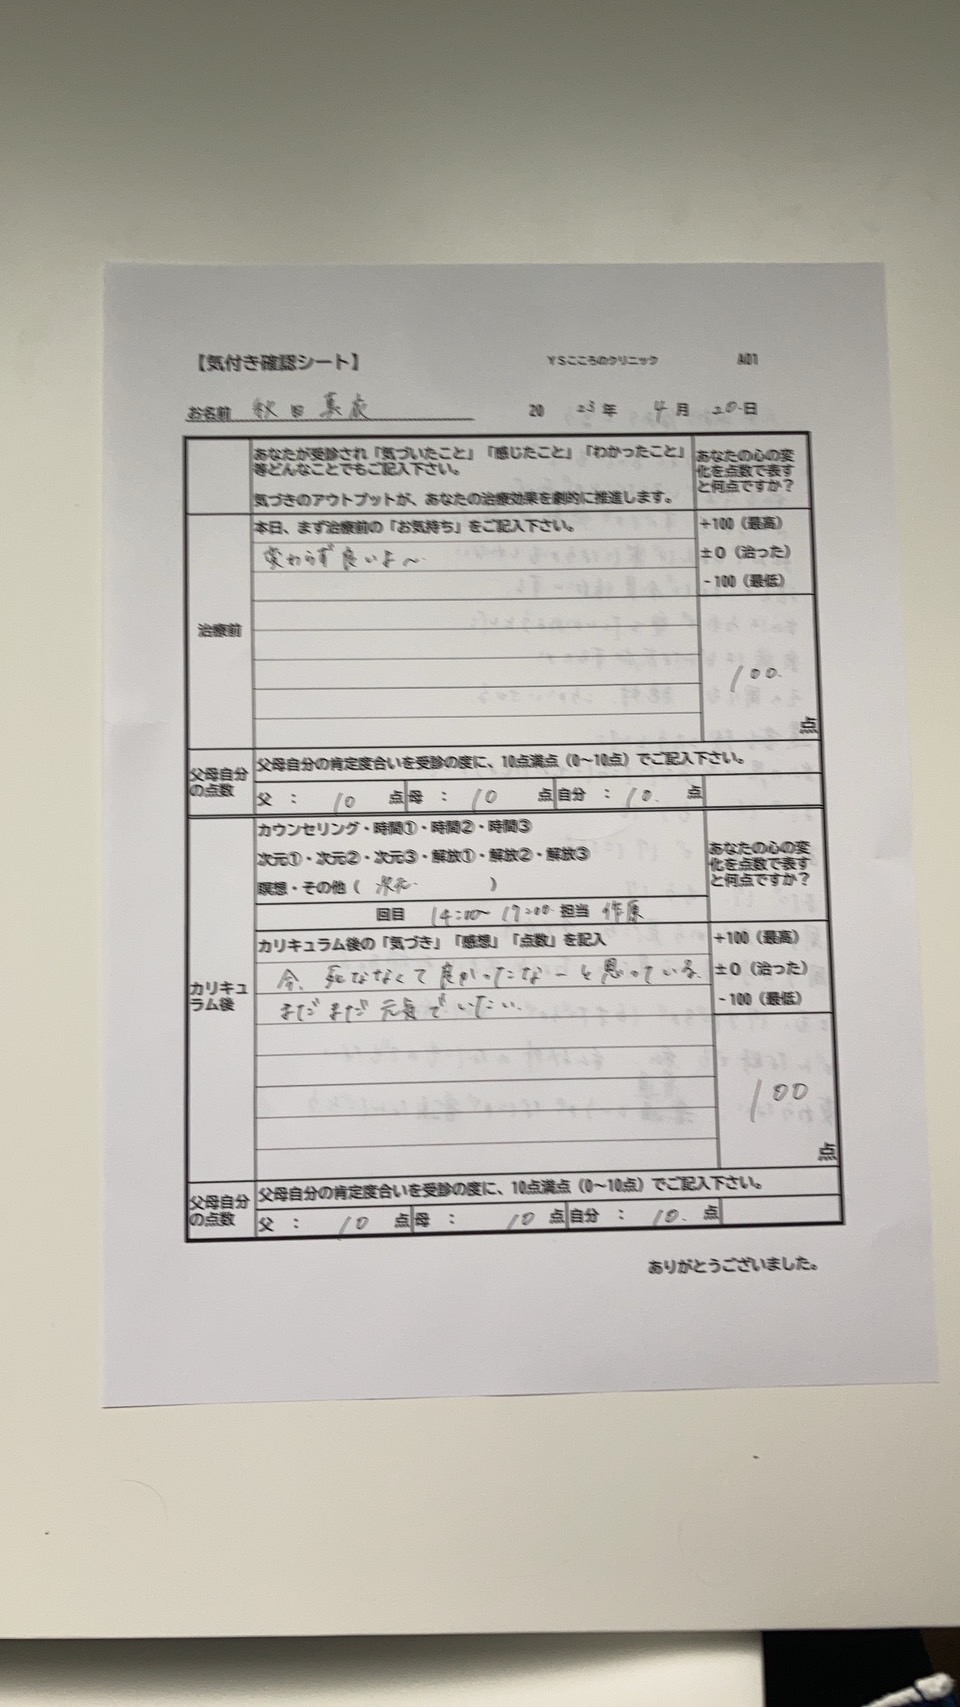 【気付き確認シート】 YSこころのクリニック A01
お名前 秋田 真衣 2023年 4月 20日
あなたが受診され「気づいたこと」「感じたこと」「わかったこと」
等どんなことでもご記入下さい。
気づきのアウトプットが、あなたの治療効果を劇的に推進します。
あなたの心の変
化を点数で表す
と何点ですか？
治療前
本日、まず治療前の「お気持ち」をご記入下さい。
変わらず良いよ〜
+100（最高）
±0（治った）
-100（最低）
100
点
父母自分
の点数
父母自分の肯定度合いを受診の度に、10点満点（0〜10点）でご記入下さい。
父 ： 10 点 母 ： 10 点 自分 ： 10. 点
カウンセリング・時間①・時間②・時間③
次元①・次元②・次元③・解放①・解放②・解放③
瞑想・その他（ 次元 ）
回目 14:00〜17:00 担当 作原
あなたの心の変
化を点数で表す
と何点ですか？
カリキュ
ラム後
カリキュラム後の「気づき」「感想」「点数」を記入
今、死ななくて良かったなーと思っている。
まだまだ元気でいたい。
+100（最高）
±0（治った）
-100（最低）
100
点
父母自分
の点数
父母自分の肯定度合いを受診の度に、10点満点（0〜10点）でご記入下さい。
父 ： 10 点 母 ： 10 点 自分 ： 10. 点
ありがとうございました。